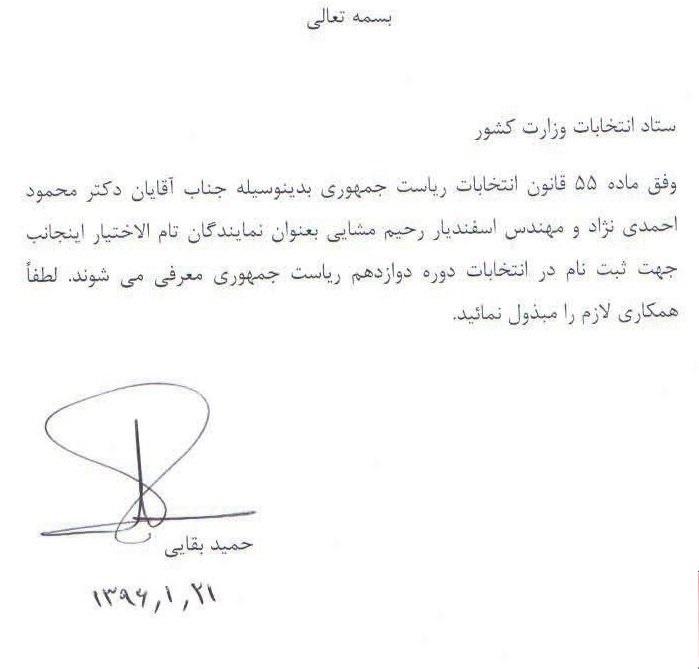 بسمه تعالی
ستاد انتخابات وزارت کشور
وفق ماده ۵۵ قانون انتخابات ریاست جمهوری بدینوسیله جناب آقایان دکتر محمود
احمدی نژاد و مهندس اسفندیار رحیم مشایی بعنوان نمایندگان تام الاختیار اینجانب
جهت ثبت نام در انتخابات دوره دوازدهم ریاست جمهوری معرفی می شوند. لطفاً
همکاری لازم را مبذول نمائید.
حمید بقایی
۱۳۹۶,۱,۲۱